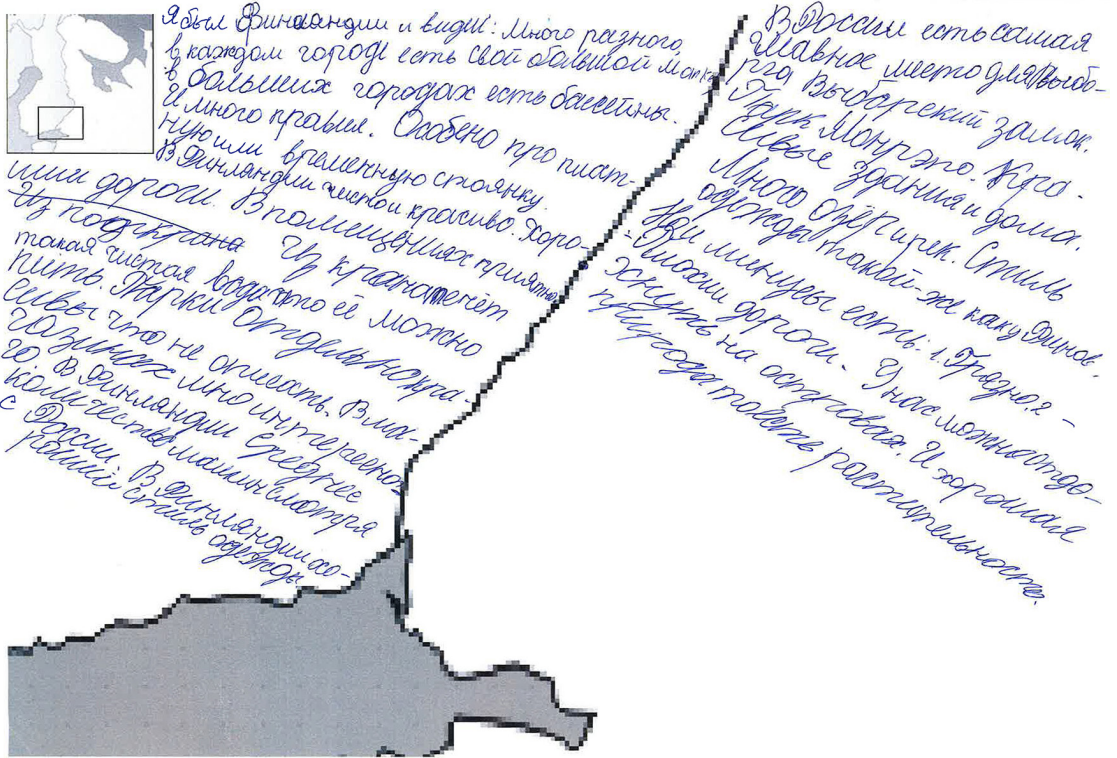 Я был Финляндии и видил: Много разного,
в каждом городе есть свой большой Марк
в больших городах есть бассейны.
И много правил. Особено про плат-
ную или временную стоянку.
В Финляндии чисто и красиво. Хоро-
шии дороги. В помещениях приятно.
Из под крана Из крана течёт
такая чистая вода что её можно
пить. Парки отдельно кра-
сивы что не опи
В ма-
газинах мно интересно-
го. В Финляндии среднее
количество машин смотря
с России. В Финляндии хо-
роший стиль одежды
В России есть самая
главное место для Выбо-
рга Выборгский замок.
Парк Монрэпо. Кра-
сивые здания и дома.
Много озёр и рек. Стиль
одежды такой-же как у Финов.
Но и минусы есть: 1. Грязно. 2 -
Плохии дороги. У нас можно отдо-
хнуть на островах. И хорошая
природа тоесть растительность.